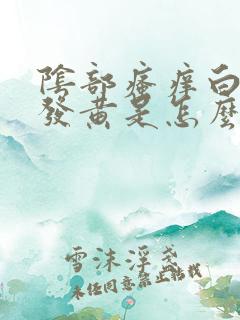 陰部瘙癢白
發黃是怎麼
雪沫浮盞
未经同意禁止搬栽